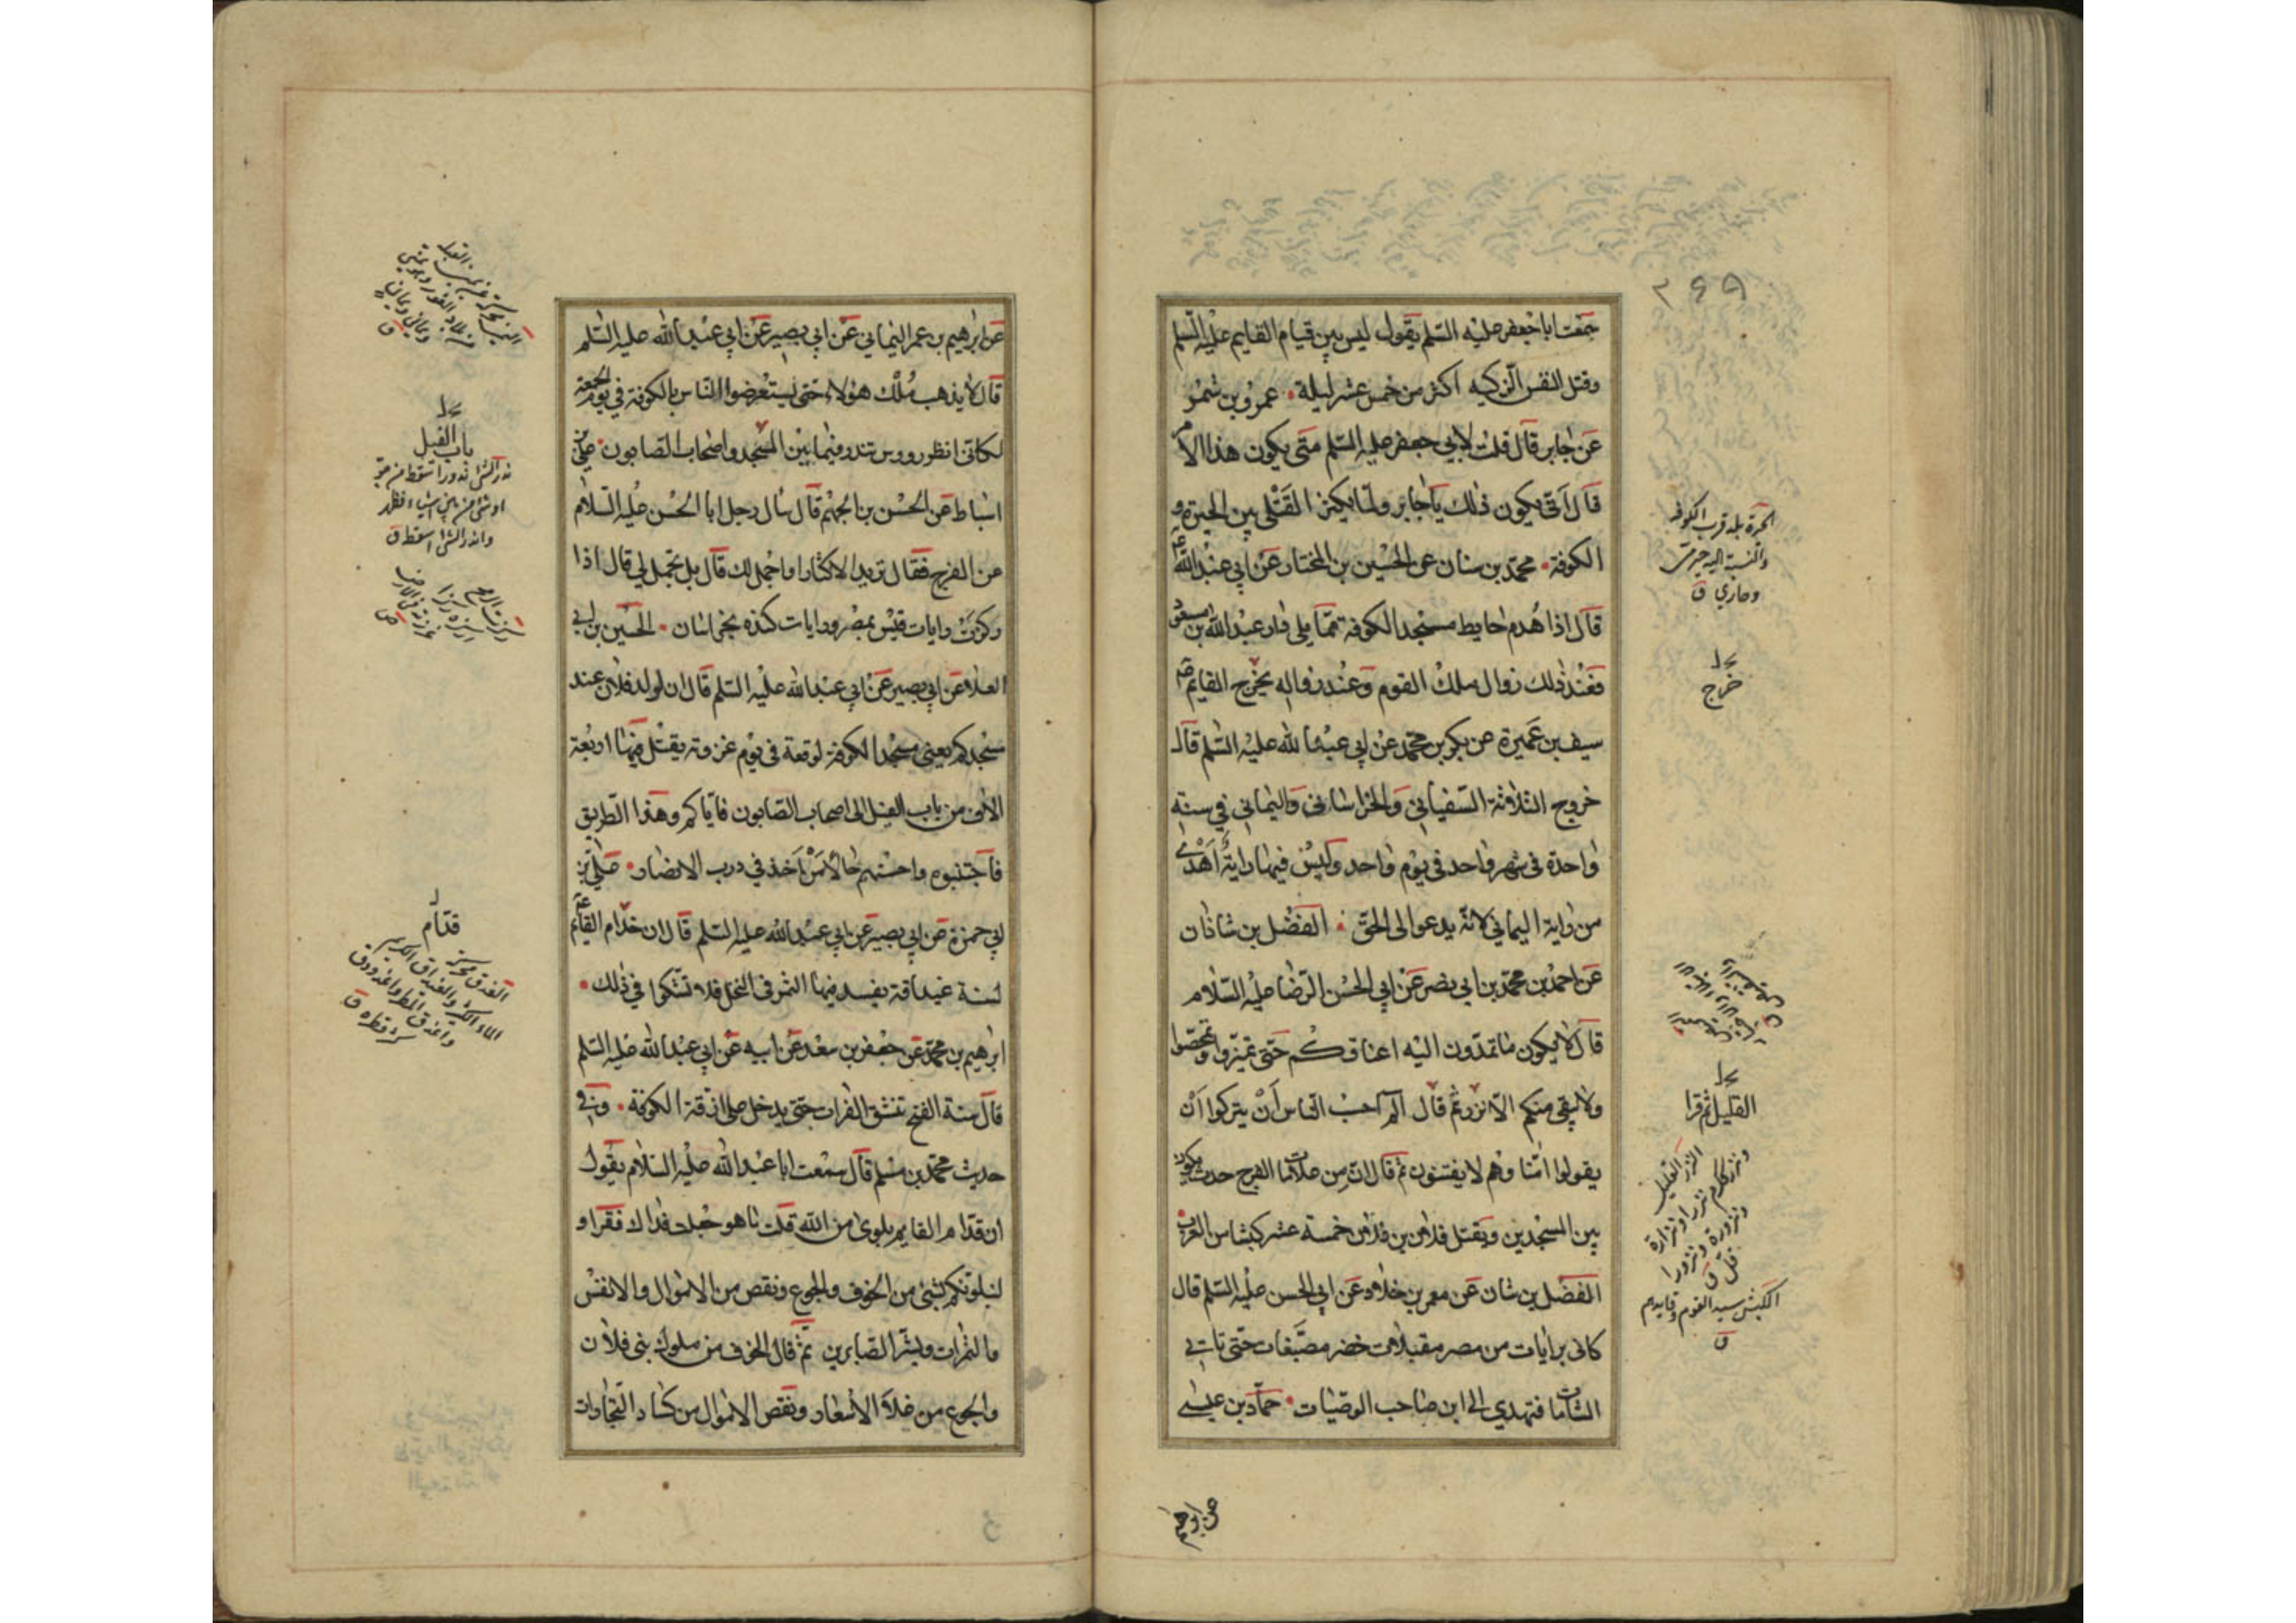 ٢٩٩
سمعت ابا جعفر عليه السّلم يقول ليس بين قيام القايم عليه السّلم
وقتل النفس الزّكيه اكثر من خمس عشر ليلة عمرو بن شمر
عن جابر قال قلت لابي جعفر عليه السّلم متى يكون هذا الامر
قال انّى يكون ذلك يا جابر ولمّا يكثر القتلى بين الحيرة و
الكوفة محمّد بن سنان عن الحسين بن المختار عن ابي عبد الله ع
قال اذا هدم حايط مسجد الكوفة ممّا يلى دار عبد الله بن مسعود
فعند ذلك زوال ملك القوم وعند زواله يخرج القايم
سيف بن عميرة عن بكر بن محمّد عن ابي عبد الله عليه السّلم قال
خروج الثلاثة السّفياني والخراساني واليماني في سنة
واحدة في شهر واحد في يوم واحد وليس فيها راية اهدى
من راية اليماني لانّه يدعو الى الحقّ الفضل بن شاذان
عن احمد بن محمّد بن ابي نصر عن ابي الحسن الرّضا عليه السّلام
قال لا يكون ما تمدّون اليه اعناقكم حتى تميّزوا وتمحّصوا
ولا يبقى منكم الّا نزر ثم قال الم احسب النّاس أن يتركوا أن
يقولوا امنّا وهم لا يفتنون ثم قال انّ من علامات الفرج حدث يكون
بين المسجدين ويقتل فلان بن فلان خمسة عشر كبشا من العرب
الفضل بن شان عن معمر بن خلاد عن ابي الحسن عليه السّلم قال
كانى برايات من مصر مقبلات خضر مصبّغات حتّى تاتي
الشامات فتهدي الى ابن صاحب الوصيّات حمّاد بن عيسى
الحيرة بلد قرب الكوفة
والنسبة اليه حيرى
وحاري ق
خرج
القليل ثم قرا
النزر القليل
ونزورة ونزورا
قلّ ق
الكبش سيد القوم وقايدهم
ق
عن ابراهيم
عن ابرهيم بن عمر اليماني عن ابي بصير عن ابي عبد الله عليه السّلم
قال لا يذهب ملك هؤلاء حتى يستعرضوا النّاس بالكوفة في يوم الجمعة
لكانى انظر رووس تندر فيما بين المسجد واصحاب الصّابون على بن
اسباط عن الحسن بن الجهم قال سال رجل ابا الحسن عليه السّلام
عن الفرج فقال تريد الاكثار او اجمل لك قال بل تجمل لي قال اذا
ركزت رايات قيس بمصر ورايات كنده بخراسان الحسين بن ابي
العلاء عن ابي بصير عن ابي عبد الله عليه السّلم قال ان لولد فلان عند
مسجدكم يعنى مسجد الكوفة لوقعة في يوم عروبة يقتل فيها اربعة
الاف من باب الفيل الى اصحاب الصّابون فايّاكم وهذا الطّريق
فاجتنبوه واحسنهم حالا من اخذ في درب الانصار علىّ بن
ابي حمزة عن ابي بصير عن ابي عبد الله عليه السّلم قال ان قدّام القايم ع
لسنة غيداقة يفسد فيها الثمر في النخل فلا تشكوا في ذلك
ابرهيم بن محمّد عن جعفر بن سعد عن ابيه عن ابي عبد الله عليه السّلم
قال سنة الفتح تنشق الفرات حتى يدخل على ازقة الكوفة وفي
حديث محمّد بن مسلم قال سمعت ابا عبد الله عليه السّلام يقول
ان قدّام القايم بلوى من الله قلت ما هو جعلت فداك فقرا و
لنبلونّكم بشئ من الخوف والجوع ونقص من الاموال والانفس
والثمرات وبشّر الصّابرين ثم قال الخوف من ملوك بنى فلان
والجوع من غلاء الأسعار ونقص الاموال من كساد التّجارات
باب الفيل
ندر الشئ ندورا سقط من جوف
اوشئ او من بين اشياء فظهر
وانذر الشئ اسقط ق
قدّام